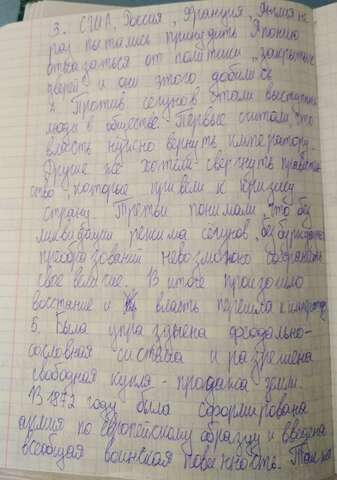 3. США, Россия, Франция, Англия не
раз пытались принудить Японию
отказаться от политики "закрытых
дверей" и они этого добились
4. Против сегунов стали выступать
люди в обществе. Первые считали, что
власть нужно вернуть императору.
Другие же хотели свергнуть правитель
ство, которые привели к кризису
страну. Третьи понимали, что без
ликвидации режима сегунов, без буржуазных
преобразований невозможно сохранить
свое величие. В итоге произошло
восстание и власть перешла к императору
5. Была упразднена феодально-
сословная система и разрешена
свободная купля - продажа земли.
В 1872 году была сформирована
армия по европейскому образцу и введена
всеобщая воинская повинность. Так же